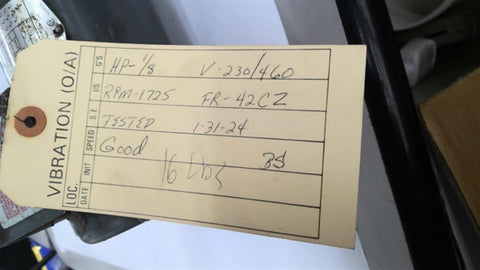 VIBRATION (O/A)
LOC.
DATE INIT SPEED S E I/S G'S
HP-1/8 V-230/460
RPM-1725 FR-42CZ
TESTED 1-31-24
Good
16 Lbs